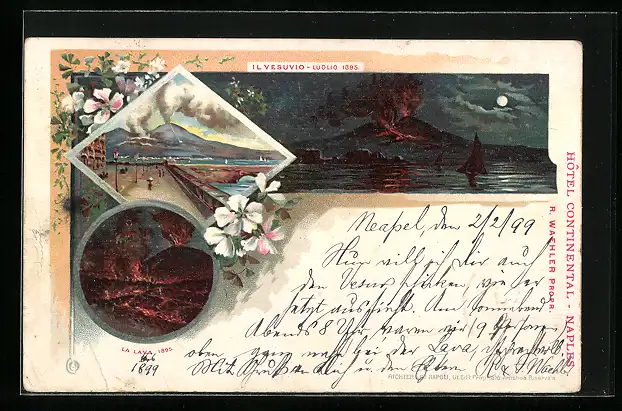 IL VESUVIO - LUGLIO 1895.
HÔTEL CONTINENTAL - NAPLES
R. WAEHLER PROPR.
Neapel, den 2/2/99
Hier will ich dir auch
den Vesuv schicken, wie er
jetzt aussieht. Am
Abends 8 Uhr waren wir 9 Personen
oben, ganz nah bei der Lava,
Mit Gruss an dich u. den
LA LAVA, 1895.
1899
RICHTER & C. NAPOLI